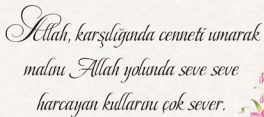 Allah, karşılığında cenneti umarak
malını Allah yolunda seve seve
harcayan kullarını çok sever.